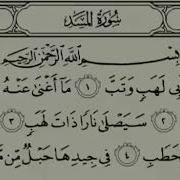 سُورَةُ المَسَدِ
بِسْمِ اللَّهِ الرَّحْمَٰنِ الرَّحِيمِ
بِي لَهَبٍ وَتَبَّ ١ مَا أَغْنَىٰ عَنْهُ
٢ سَيَصْلَىٰ نَارًا ذَاتَ لَهَبٍ ٣
حَطَبِ ٤ فِي جِيدِهَا حَبْلٌ مِّن